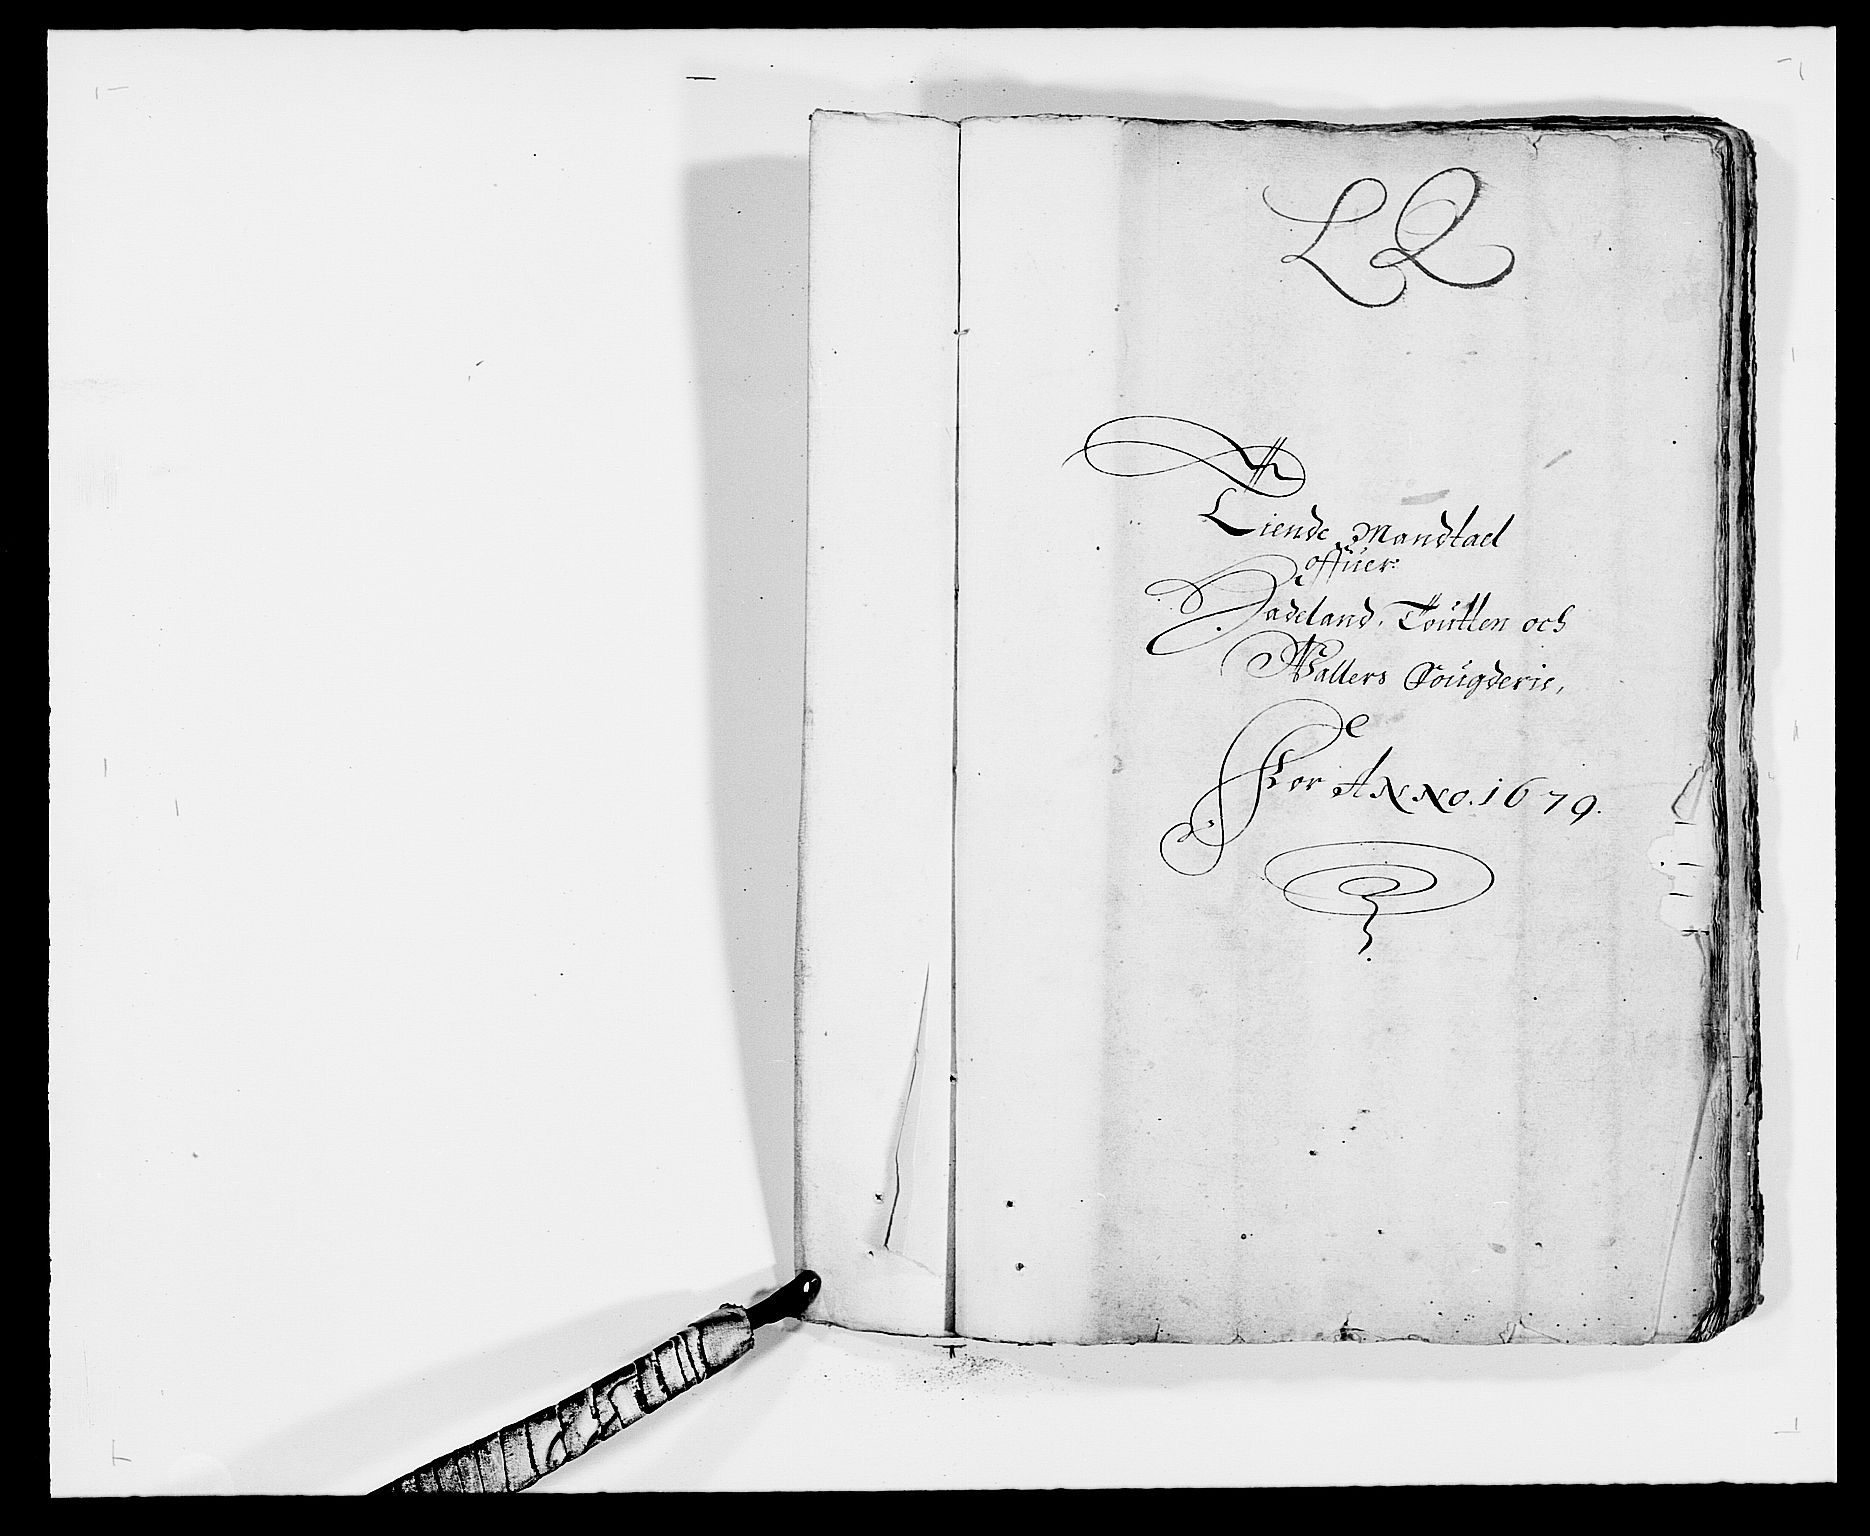 L Q
Tiende Mandtael
offuer
Hadeland, Toutten och
Wallers Fougderie,
For ANNo. 1679.